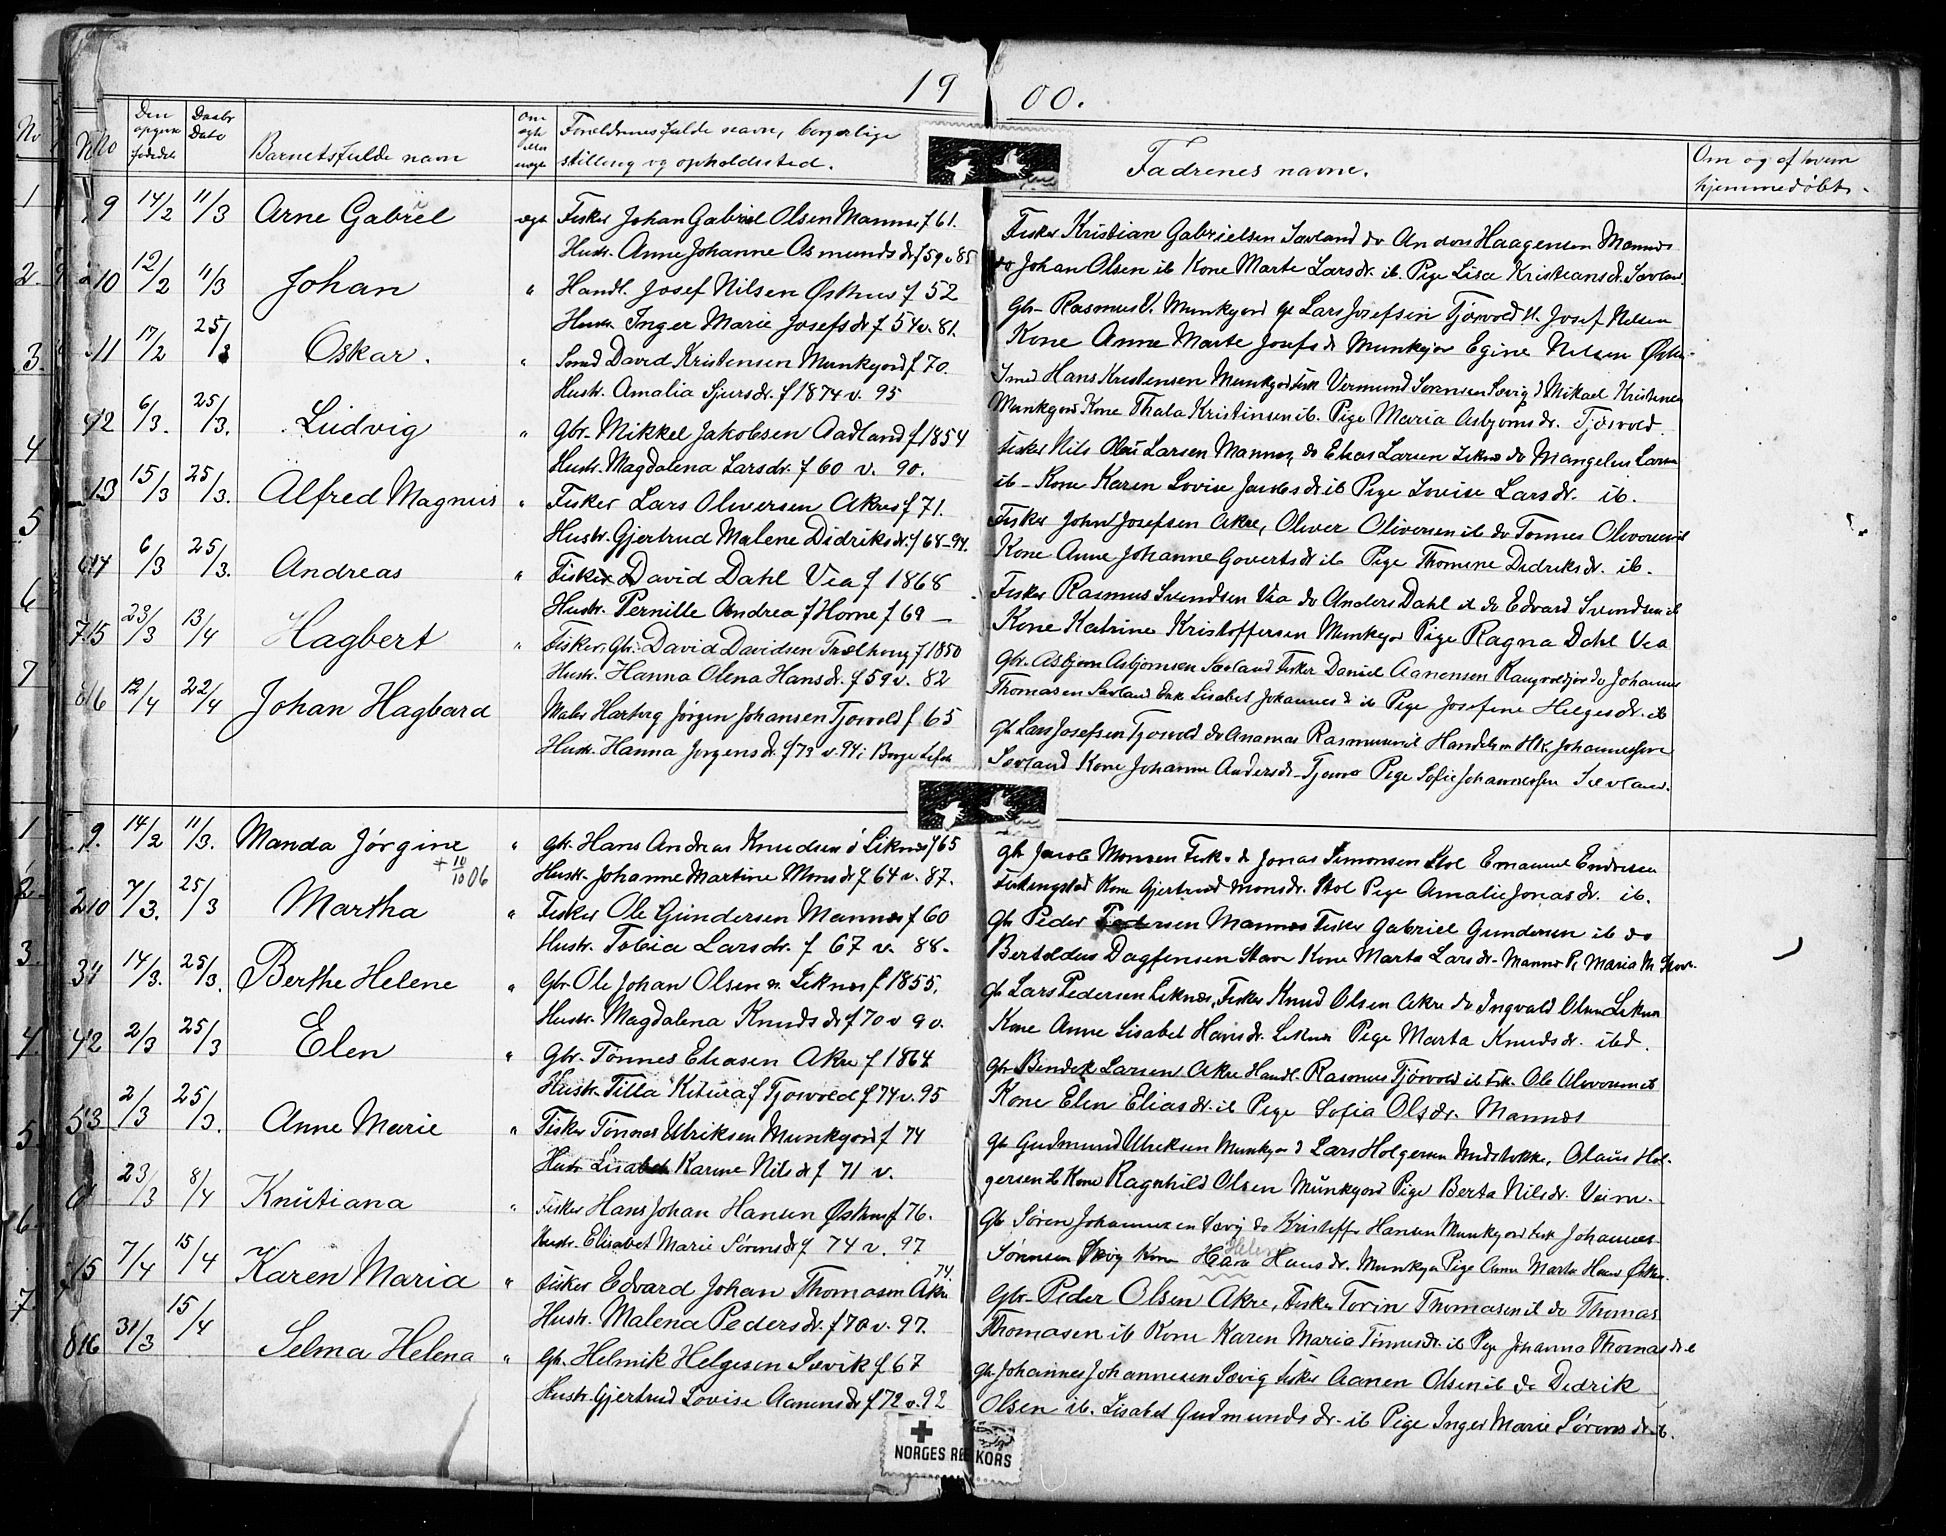 1900.
No
Den opgivne fødsels
Daabs Dato
Barnets fulde navn
Om ægte eller uægte
Forældrenes fulde navn, borgerlige
stilling og opholdssted.
Fadrenes navne.
Om og af hvem
hjemmedøbt.
9 14/2 11/3 Arne Gabriel ægte Fisker Johan Gabriel Olsen Mannes f 61.
Hustr. Anne Johanne Osmundsdr f 59 v 85
Fisker Kristian Gabrielsen Sævland do Anders Haagensen Mannes
do Johan Olsen ib Kone Marte Larsdr. ib. Pige Lisa Kristiansdr. Sævland
10 12/2 11/3 Johan " Handl. Josef Nilsen Østhus f 52
Hustr. Inger Marie Josefsdr f 54 v. 81.
Gbr Rasmus V. Munkejord Lars Josefsen Tjøsvold Josef Nilsen
Kone Anne Marte Josefsdr Munkejor Egine Nilsen Østhus
11 17/2 25/3 Oskar. " Smed David Kristensen Munkejord f 70.
Hustr. Amalia Sjursdr. f 1874 v. 95
Smed Hans Kristensen Munkejord Fisk Vermund Sørensen Sævig Mikael Kristensen
Munkejord Kone Thala Kristinsen ib. Pige Maria Asbjørnsdr. Tjøsvold
12 6/3. 25/3. Ludvig " Gbr. Mikkel Jakobsen Aadland f 1854
Hustr. Magdalena Larsdr. f 60 v. 90.
Fisker Nils Larsen Mannes, do Elias Larsen Liknes do Mangelus Larsen
ib Kone Karen Lovise Jacobsdr ib Pige Lovise Larsdr. ib.
13 15/3 25/3. Alfred Magnus " Fisker Lars Oliversen Akre f 71.
Hustr. Gjertrud Malene Didriksdr. f 68 - 94.
Fisker John Josefsen Akre, Oliver Oliversen ib do Tønnes Oliversen ib
Kone Anne Johanne Govertsdr ib Pige Thomine Didriksdr. ib.
14 6/3 25/3. Andreas " Fisker David Dahl Vea f 1868
Hustr. Pernille Andrea f Horne f 69 —
Fisker Rasmus Svendsen Vea do Anders Dahl ib do Edvard Svendsen ib
Kone Katrine Kristoffersen Munkejor Pige Ragna Dahl Vea
15 23/3 13/4 Hagbert " Fisker, Gbr. David Davidsen Trælhaug f 1850
Hustr. Hanna Olena Hansdr. f 59 v. 82
Gbr. Asbjørn Asbjørnsen Sævland Fisker Daniel Aanensen do Johannes
Thomasen Sævland Enk Lisabet Johannesdr ib Pige Josefine Helgesdr. ib
16 12/4 22/4 Johan Hagbard Maler Hartvig Jørgen Johansen Tjøsvold f 65
Hustr. Hanna Jørgensdr. f 73 v. 94
Gbr Lars Josefsen Tjøsvold do Ananias Rasmussen ib Handelsm HK. Johannessen
Sævland Kone Johanne Andersdr. Tjøsvo Pige Sofie Johannessen Sævland.
9. 14/2 11/3. Manda Jørgine " gbr. Hans Andreas Knudsen Liknes f 65
+ 10/10 06
Hustr. Johanne Martine Monsdr f 64 v. 87.
gbr Jacob Monsen Fisk. Jonas Simonsen Stol Emanuel Endresen
Ferkingstad Kone Gjertrud Monsdr. Stol Pige Amalie Jonasdr. ib.
10 7/3. 25/3 Martha " Fisker Ole Gundersen Mannes f 60
Hustr. Tobia Larsdr. f 67 v. 88.
Gbr Peder Pedersen Mannes Fisker Gabriel Gundersen ib do
Berteldus Dagfinsen Stava Kone Marta Larsdr. Mannes P. Maria M Stava.
11 14/3. 25/3. Berthe Helene " Gbr Ole Johan Olsen Liknes f 1855.
Hustr. Magdalena Knudsdr f 70 v 90.
Gbr Lars Pedersen Liknes, Fisker Knud Olsen Akre do Ingvald Olsen Liknes
Kone Anne Lisabet Hansdr. Liknes Pige Marta Knudsdr. ibd.
12 2/3 25/3 Elen " Gbr. Tønnes Eliasen Akre f 1864
Hustr. Tilla Kitura f Tjøsvold f 74 v. 95
Gbr Bendik Larsen Akre Handl. Rasmus Tjøsvold ib Fisk. Ole Oliversen ib
Kone Elen Eliasdr. ib Pige Sofia Olsdr. Mannes
13 2/3 25/3. Anne Marie " Fisker Tønnes Ulriksen Munkejord f 74
Hustr. Lisabet Karine Nilsdr f 71 v.
Gbr Gudmund Ulriksen Munkejor Lars Holgersen Medstokke, Olaus Hol-
gersen ib Kone Ragnhild Olsen Munkejord Pige Berta Nilsdr. Veim.
23/3 8/4 Knutiana " Fisker Hans Johan Hansen Østhus f 76.
Hustr. Elisabet Marie Sørensdr f 74 v. 97
Gbr Søren Johannesen Sævig do Kristoffer Hansen Munkejord Fisk Johannes
Sørensen Sævig Kone Helene Hansdr. Munkejo Pige Anne Marta Hans Østhus.
15 7/4 15/4 Karen Maria " Fisker Edvard Johan Thomasen Akre 74.
Hustr. Malena Pedersdr. f 70 v. 97.
Gbr. Peder Olsen Akre, Fisker Torin Thomasen ib do Thomas
Thomasen ib Kone Karen Maria Tønnesdr. ib Pige Johanna Thomasdr ib
16 31/3 15/4 Selma Helena " Gbr. Helmik Helgesen Sævik f 67
Hustr. Gjertrud Lovise Aanensdr f 72 v. 92
Gbr Johannes Johannesen Sævig Fisker Aanen Olsen ib do Didrik
Olsen ib. Lisabet Gudmundsdr. ib Pige Inger Marie Sørensdr ib.
NORGES RØDE KORS